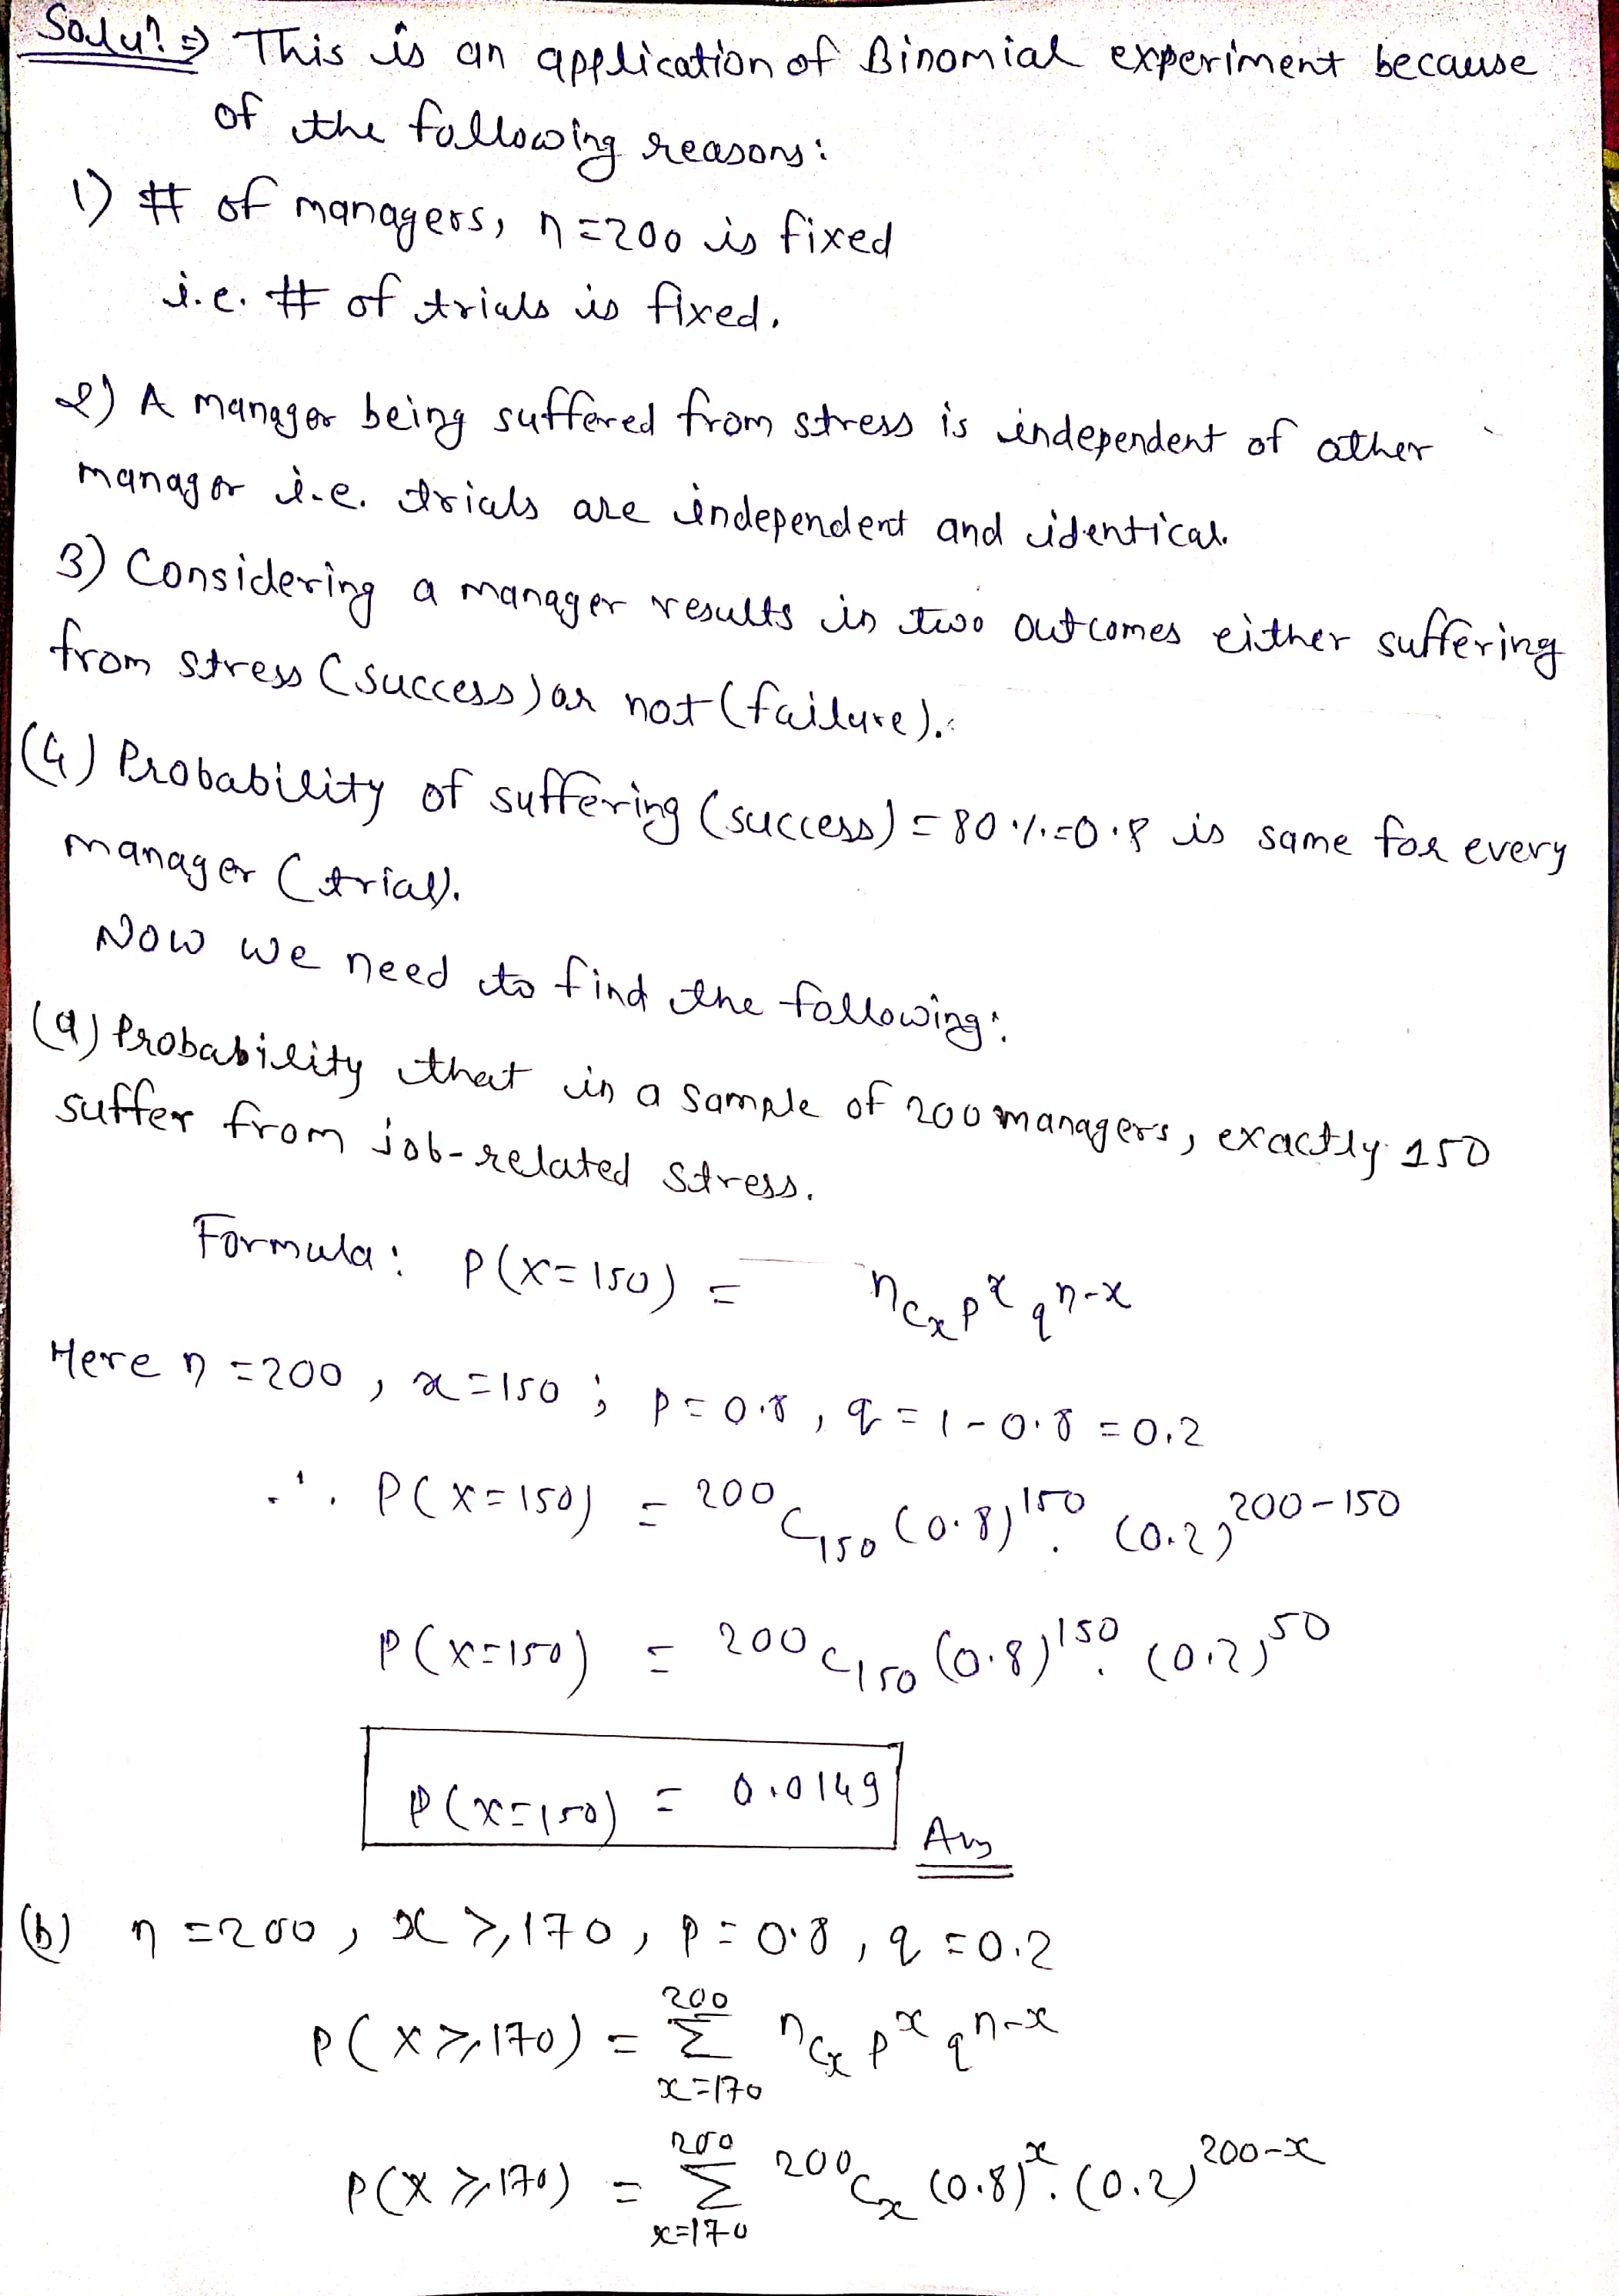 Solun ⇒ This is an application of Binomial experiment because
of the following reasons:
1) # of managers, n=200 is fixed
i.e. # of trials is fixed.
2) A manager being suffered from stress is independent of other
manager i.e. trials are independent and identical.
3) Considering a manager results in two outcomes either suffering
from stress (success) or not (failure).
(4) Probability of suffering (success) = 80%=0.8 is same for every
manager (trial).
Now we need to find the following:
(a) Probability that in a sample of 200 managers, exactly 150
suffer from job-related stress.
Formula: P(X=150) = ⁿCₓ pˣ qⁿ⁻ˣ
Here n=200, x=150; p=0.8, q=1-0.8=0.2
∴ P(X=150) = ²⁰⁰C₁₅₀ (0.8)¹⁵⁰. (0.2)²⁰⁰⁻¹⁵⁰
P(X=150) = ²⁰⁰C₁₅₀ (0.8)¹⁵⁰. (0.2)⁵⁰
P(X=150) = 0.0149
Ans
(b) n=200, x ≥ 170, p=0.8, q=0.2
P(X ≥ 170) = Σ_{x=170}^{200} ⁿCₓ pˣ qⁿ⁻ˣ
P(X ≥ 170) = Σ_{x=170}^{200} ²⁰⁰Cₓ (0.8)ˣ. (0.2)²⁰⁰⁻ˣ